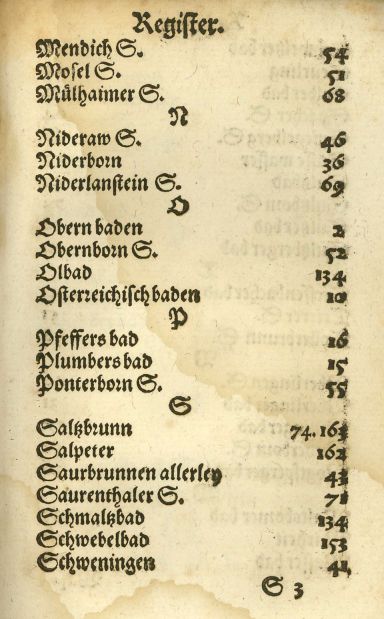 Register.
Mendich S. 54
Mosel S. 51
Mülhaimer S. 68
N
Nideraw S. 46
Niderborn 36
Niderlanstein S. 69
O
Obern baden 2
Obernborn S. 52
Olbad 134
Osterreichisch baden 10
P
Pfeffers bad 16
Plumbers bad 15
Ponterborn S. 55
S
Saltzbrunn 74. 163
Salpeter 162
Saurbrunnen allerley 43
Saurenthaler S. 71
Schmaltzbad 134
Schwebelbad 153
Schweningen 41
S 3